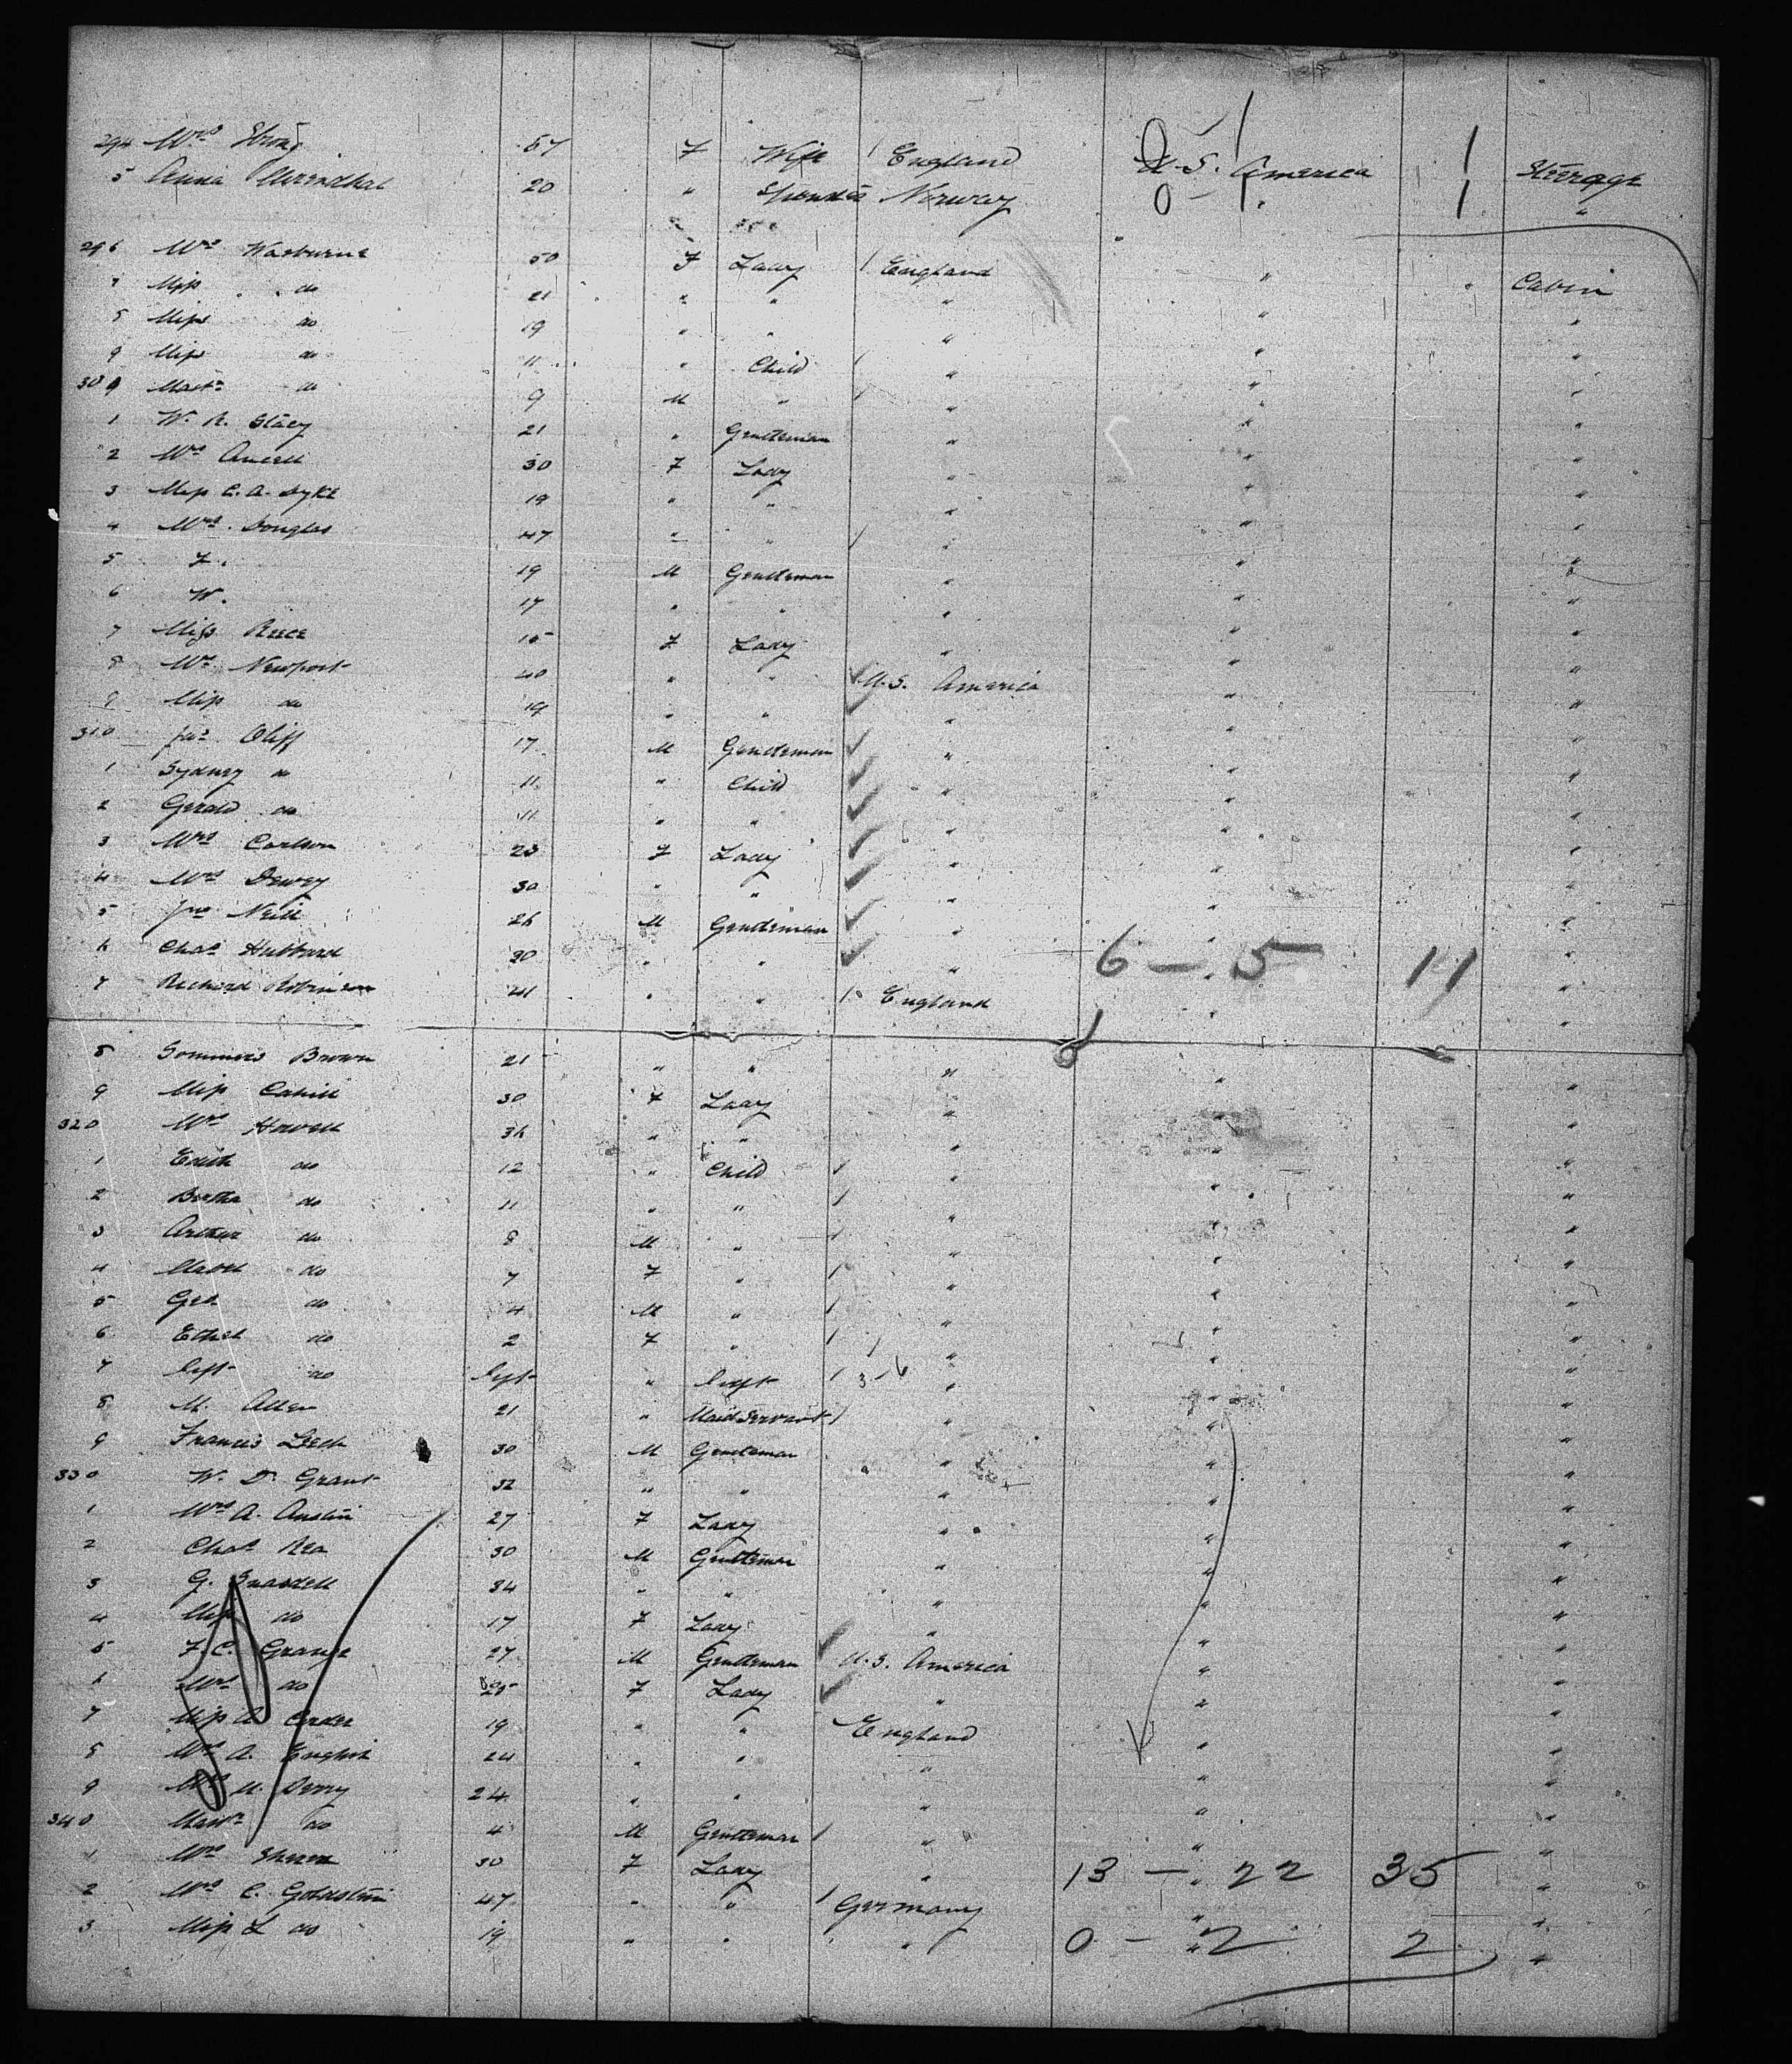 294 Mrs Strong 57 F Wife / England U.S. America 1 Steerage
5 Anna 20 " Spinster Norway 0 - 1 1 "
296 Mrs Washurne 50 F Lady / England " Cabin
7 Miss do 21 " " " " "
8 Miss do 19 " " " " "
9 Miss do 11 " Child / " " "
300 Mastr do 9 M " / " " "
1 W. R. Stacy 21 " Gentleman " " "
2 Mrs 30 F Lady " " "
3 Miss C. A. Dyke 19 " " " " "
4 Mrs. Douglas 47 " " / " " "
5 F. 19 M Gentleman " " "
6 W. 17 " " " " "
7 Miss Reece 15 F Lady " " "
8 Mrs Newport 40 " " U.S. America " "
9 Miss do 19 " " " " "
310 Jas Oliff 17 M Gentleman " " "
1 Sydney do 11 " Child " " "
2 Gerald do 11 " " " " "
3 Mrs Carlson 23 F Lady " " "
4 Mrs Dewey 30 " " " " "
5 Jno Neill 26 M Gentleman " " "
6 Chas Hubbard 30 " " " 6 - 5 11 "
7 Richard Robinson 41 " " / England " "
8 Sommers Brown 21 " " " " "
9 Miss Cahill 30 F Lady " " "
320 Mrs Howell 36 " " " " "
1 Edith do 12 " Child / " " "
2 Bertha do 11 " " / " " "
3 Arthur do 8 M " / " " "
4 Mabel do 7 F " / " " "
5 Geo. do 4 M " / " " "
6 Ethel do 2 F " / " " "
7 Inft do Inft " Inft / 3-6 " " "
8 M. Allen 21 " Maid Servant / " " "
9 Francis Leech 30 M Gentleman " " "
330 W. D. Grant 32 " " " " "
1 Mrs A. Austin 27 F Lady " " "
2 Chas Rea 30 M Gentleman " " "
3 G. 34 " " " " "
4 Miss do 17 F Lady " " "
5 F. C. Grange 27 M Gentleman U.S. America " "
6 Mrs do 25 F Lady " " "
7 Miss A. 19 " " England " "
8 Mrs A. English 24 " " " " "
9 Mrs M. Derry 24 " " " " "
340 Mastr do 4 M Gentleman / " " "
1 Mrs 30 F Lady " 13 - 22 35 "
2 Mrs C. Goldstein 47 " " / Germany " "
3 Miss L do 19 " " " 0 - 2 2 "